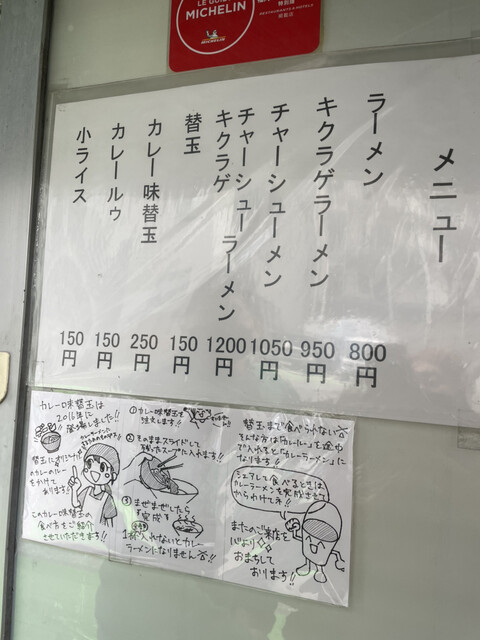 LE GUIDE
MICHELIN
特別版
RESTAURANTS & HOTELS
掲載店
MICHELIN
メニュー
ラーメン 800円
キクラゲラーメン 950円
チャーシューメン 1050円
チャーシューラーメン
キクラゲ 1200円
替玉 150円
カレー味替玉 250円
カレールゥ 150円
小ライス 150円
カレー味替玉は
2016年に
登場しました!!
替玉にオリジナル
のカレールーを
かけて
あります!!
このカレー味替玉の
食べ方をご紹介
させていただきます!!
①カレー味替玉を
注文します!!
②そのままスライドして
残ったスープに入れます!!
③まぜまぜしたら
完成!
1杯入れないとカレー
ラーメンになりません
替玉まで食べられない
そんな方は「カレールー」を途中
で入れると「カレーラーメン」に
なります!!
シェアして食べるときは
カレーラーメンを完成させて
からわけてネ!!
またのご来店を
心より
おまちして
おります!!